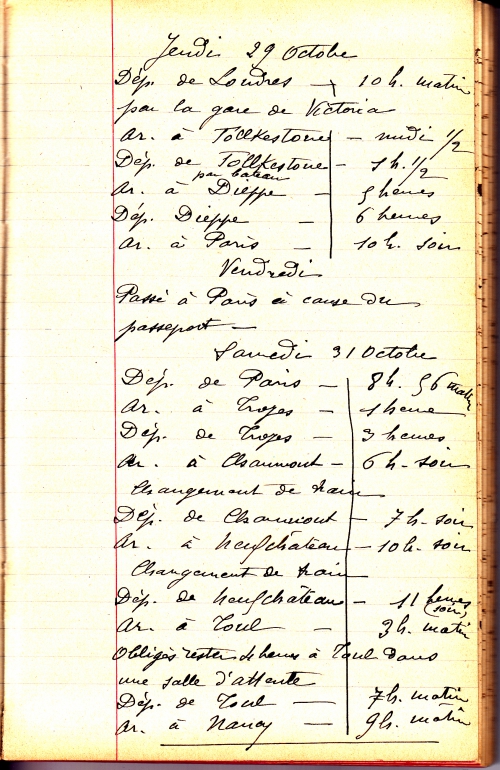 Jeudi 29 Octobre
Dép. de Londres – 10 h. matin
par la gare de Victoria
Ar. à Tollkestone – midi 1/2
Dép. de Tollkestone – 1 h. 1/2
par bateau
Ar. à Dieppe – 5 heures
Dép. Dieppe – 6 heures
Ar. à Paris – 10 h. soir
Vendredi
Passé à Paris à cause du
passeport –
Samedi 31 Octobre
Dép. de Paris – 8 h. 56 matin
Ar. à Troyes – 1 heure
Dép. de Troyes – 3 heures
Ar. à Chaumont – 6 h. soir
Changement de train
Dép. de Chaumont – 7 h. soir
Ar. à Neufchâteau – 10 h. soir
Changement de train
Dép. de Neufchâteau – 11 heures (soir)
Ar. à Toul – 3 h. matin
Obligés rester 4 heures à Toul dans
une salle d'attente
Dép. de Toul – 7 h. matin
Ar. à Nancy – 9 h. matin